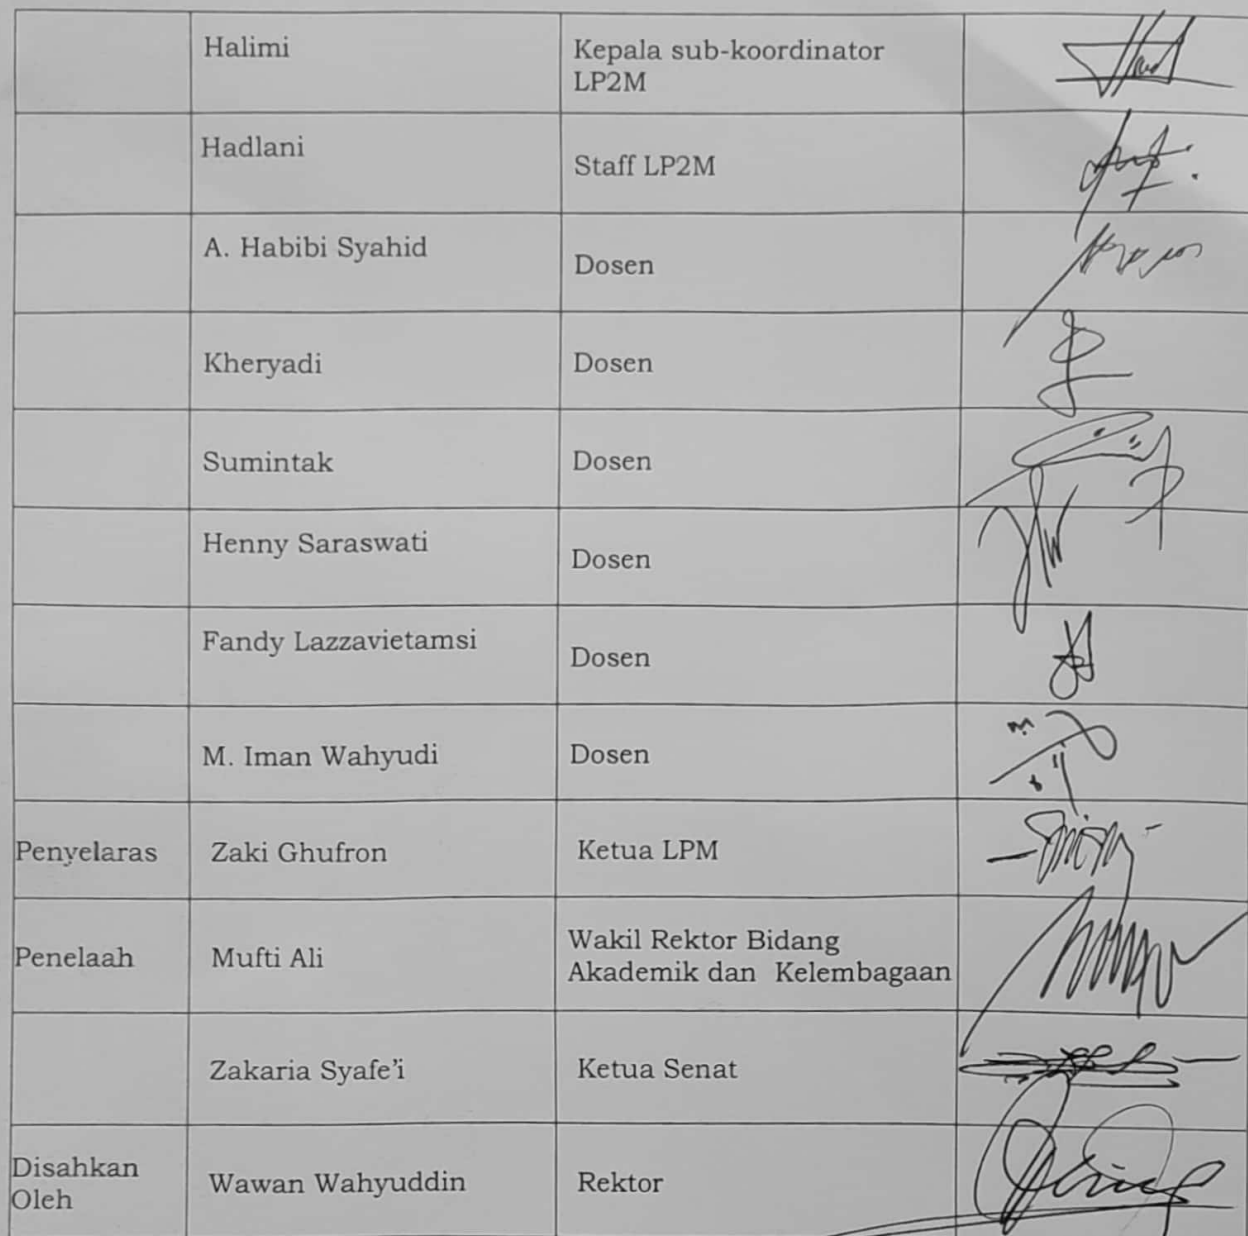 Halimi
Kepala sub-koordinator
LP2M
Hadlani
Staff LP2M
A. Habibi Syahid
Dosen
Kheryadi
Dosen
Sumintak
Dosen
Henny Saraswati
Dosen
Fandy Lazzavietamsi
Dosen
M. Iman Wahyudi
Dosen
Penyelaras
Zaki Ghufron
Ketua LPM
Penelaah
Mufti Ali
Wakil Rektor Bidang
Akademik dan Kelembagaan
Zakaria Syafe'i
Ketua Senat
Disahkan
Oleh
Wawan Wahyuddin
Rektor